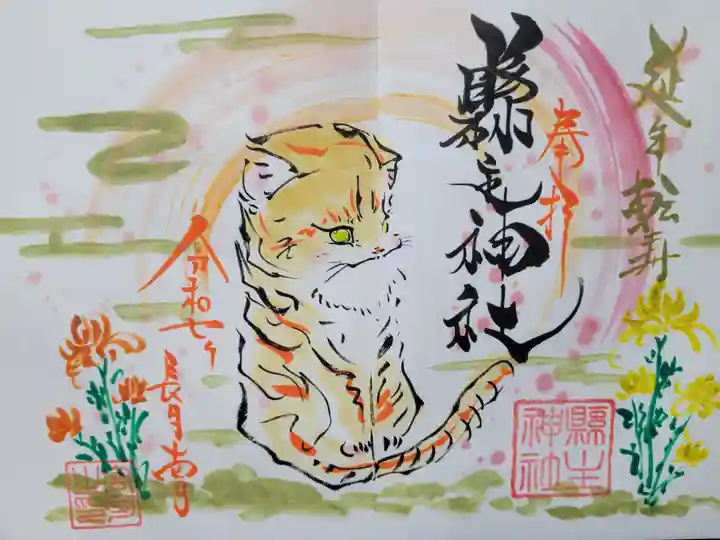 延年転寿
奉拝
縣主神社
縣主
神社
令和七年
長月吉日